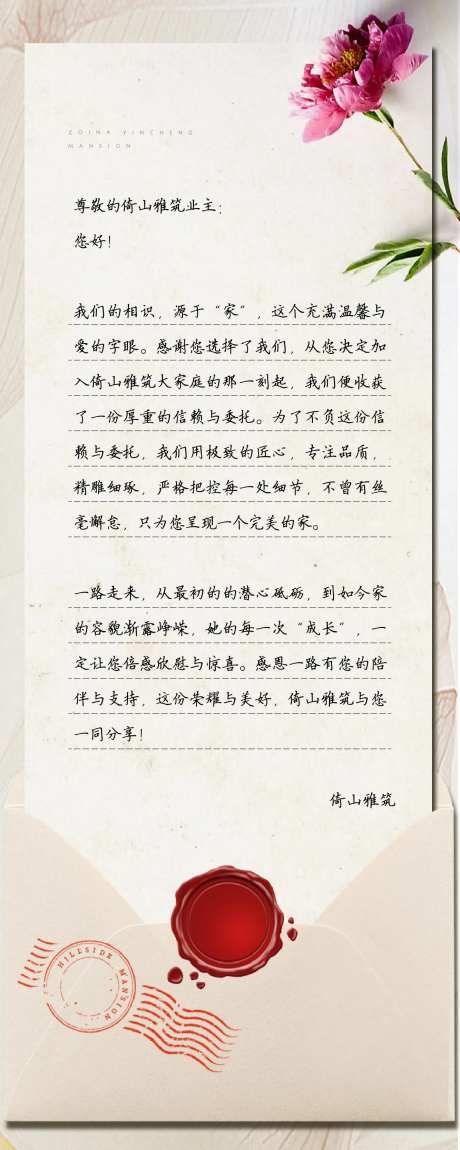 ZOINA YINCHENG
MANSION
尊敬的倚山雅筑业主：
您好！
我们的相识，源于“家”，这个充满温馨与
爱的字眼。感谢您选择了我们，从您决定加
入倚山雅筑大家庭的那一刻起，我们便收获
了一份厚重的信赖与委托。为了不负这份信
赖与委托，我们用极致的匠心，专注品质，
精雕细琢，严格把控每一处细节，不曾有丝
毫懈怠，只为您呈现一个完美的家。
一路走来，从最初的的潜心砥砺，到如今家
的容貌渐露峥嵘，她的每一次“成长”，一
定让您倍感欣慰与惊喜。感恩一路有您的陪
伴与支持，这份荣耀与美好，倚山雅筑与您
一同分享！
倚山雅筑
HILLSIDE MANSION